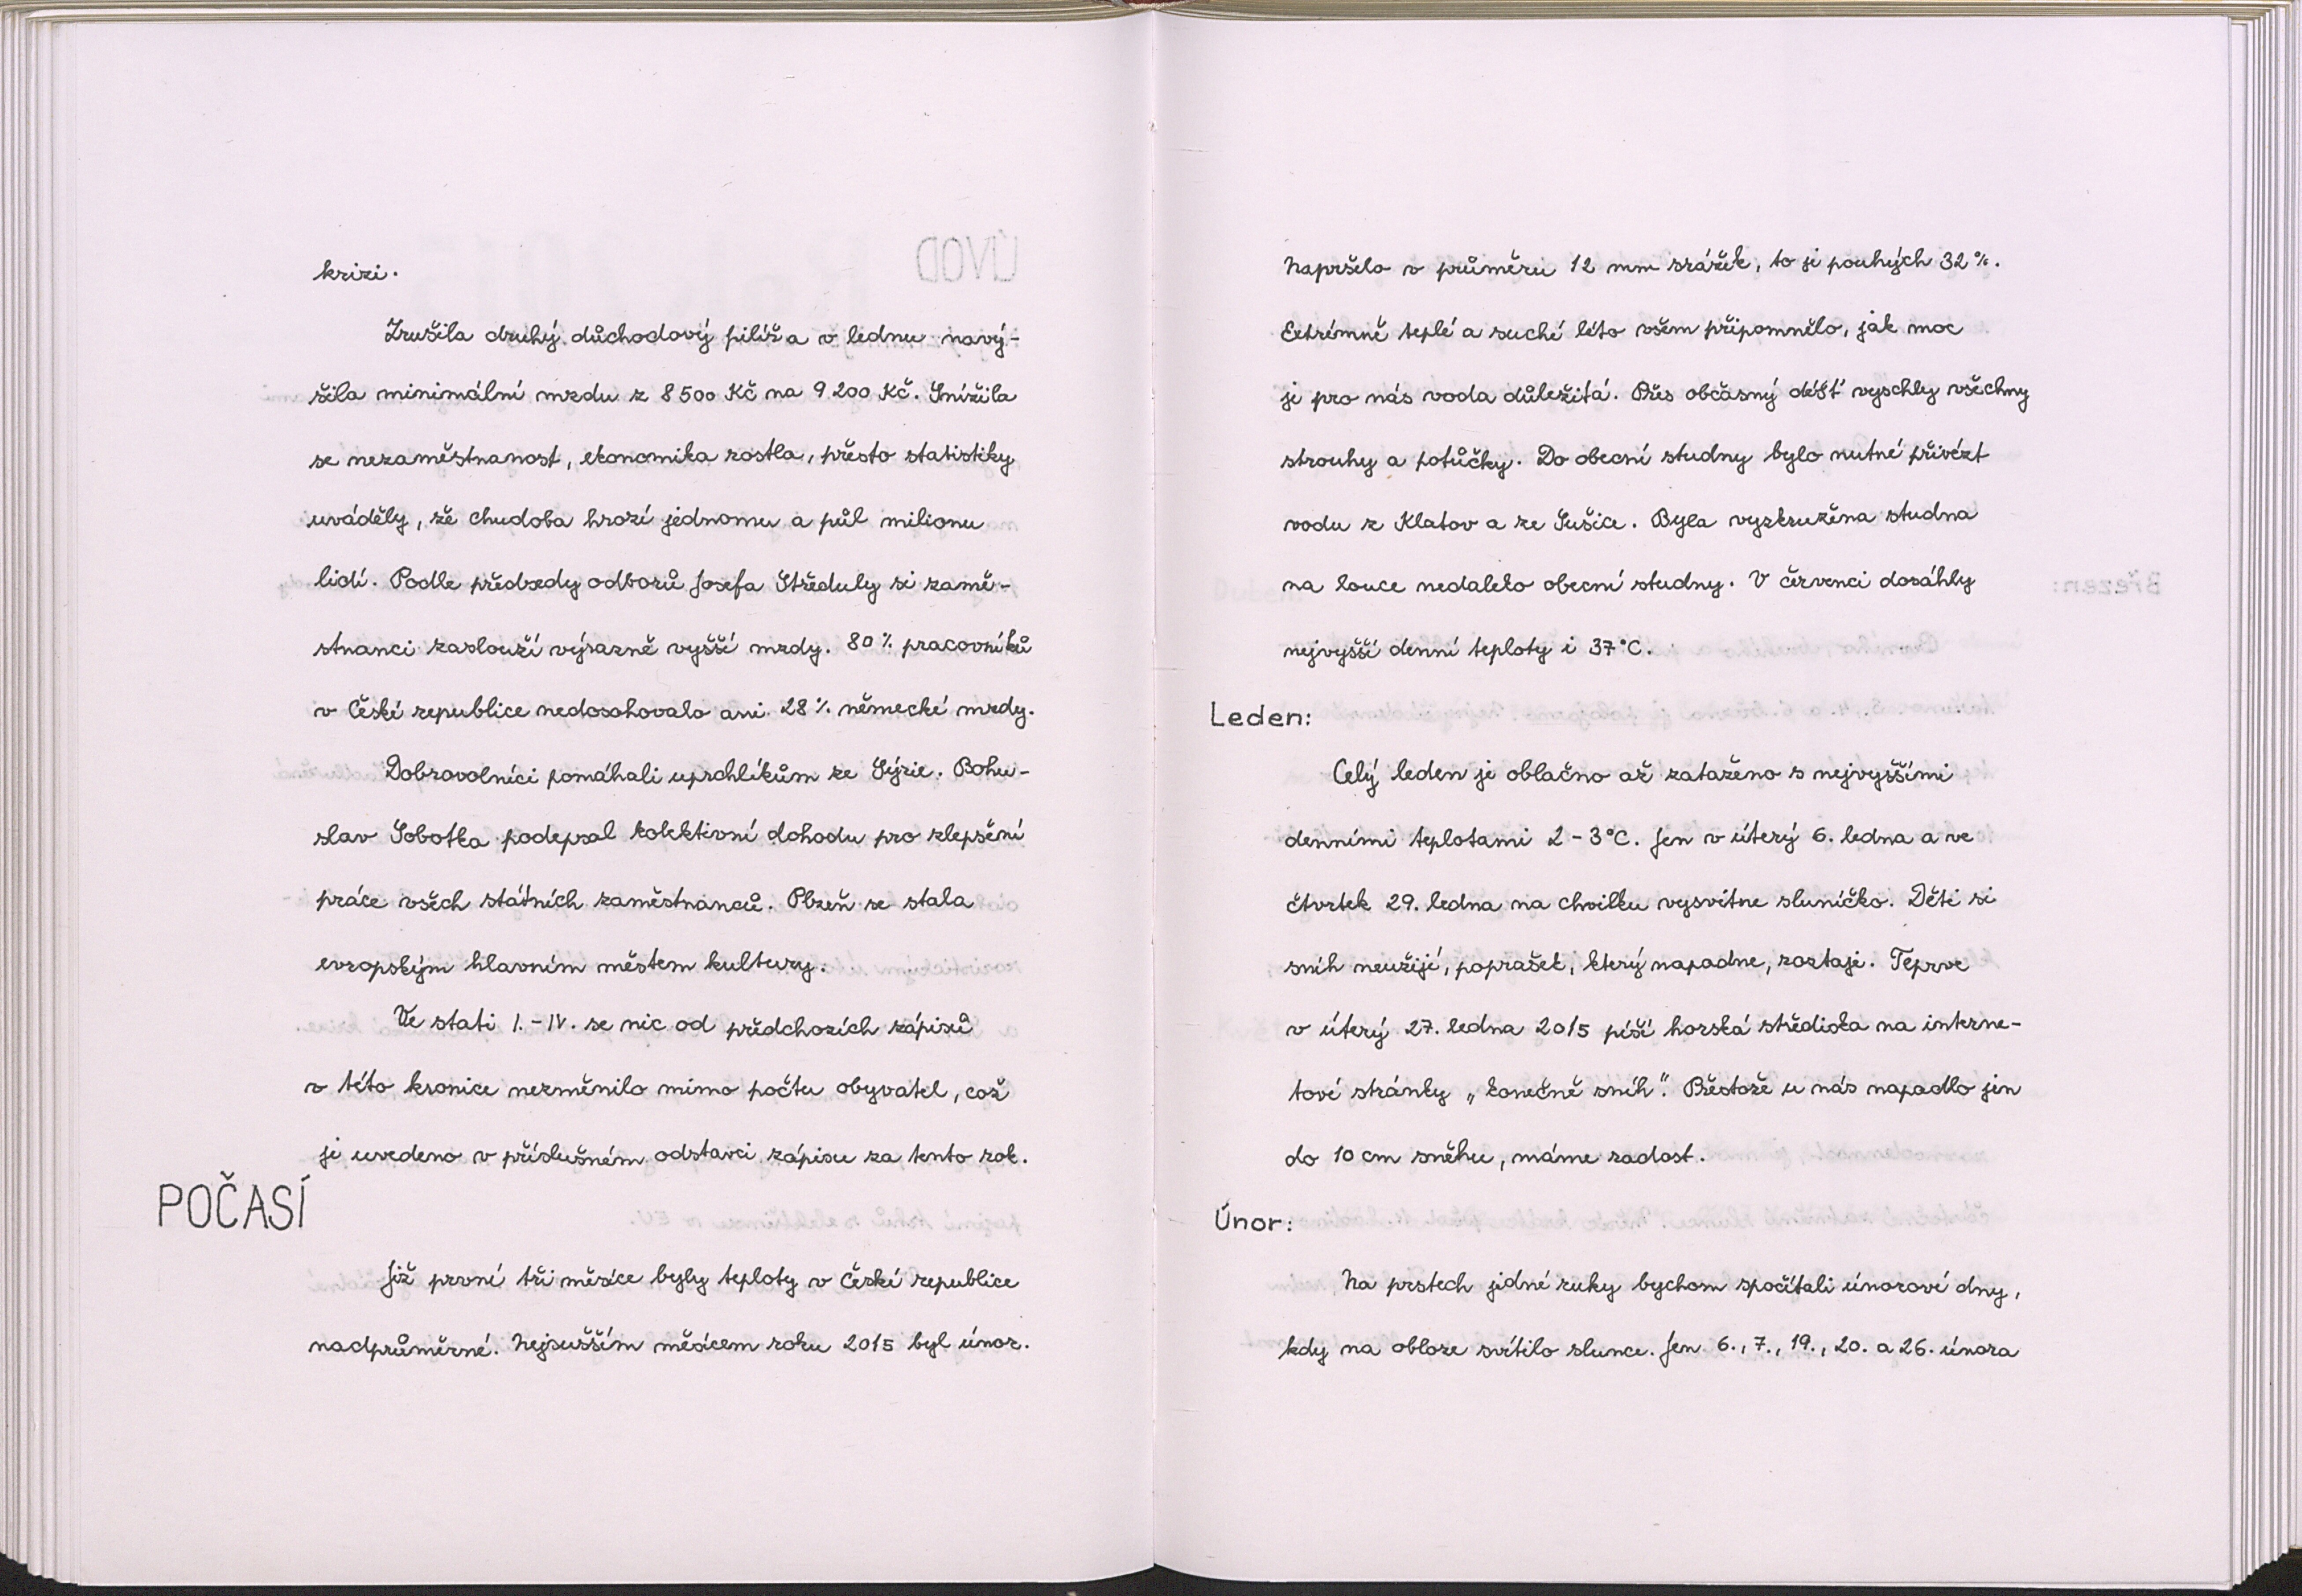 krizi.
Zrušila druhý důchodový pilíř a v lednu navý-
šila minimální mzdu z 8 500 Kč na 9 200 Kč. Snížila
se nezaměstnanost, ekonomika rostla, přesto statistiky
uváděly, že chudoba hrozí jednomu a půl milionu
lidí. Podle předsedy odborů Josefa Středuly si zamě-
stnanci zaslouží výrazně vyšší mzdy. 80 % pracovníků
v České republice nedosahovalo ani 28 % německé mzdy.
Dobrovolníci pomáhali uprchlíkům ze Sýrie. Bohu-
slav Sobotka podepsal kolektivní dohodu pro zlepšení
práce všech státních zaměstnanců. Plzeň se stala
evropským hlavním městem kultury.
Ve stati I. - IV. se nic od předchozích zápisů
v této kronice nezměnilo mimo počtu obyvatel, což
je uvedeno v příslušném odstavci zápisu za tento rok.
POČASÍ
Již první tři měsíce byly teploty v České republice
nadprůměrné. Nejsušším měsícem roku 2015 byl únor.
Napršelo v průměru 12 mm srážek, to je pouhých 32 %.
Extrémně teplé a suché léto všem připomnělo, jak moc
je pro nás voda důležitá. Přes občasný déšť vyschly všechny
strouhy a potůčky. Do obecní studny bylo nutné přivézt
vodu z Klatov a ze Sušice. Byla vyzkružena studna
na louce nedaleko obecní studny. V červenci dosáhly
nejvyšší denní teploty i 37°C.
Leden:
Celý leden je oblačno až zataženo s nejvyššími
denními teplotami 2 - 3°C. Jen v úterý 6. ledna a ve
čtvrtek 29. ledna na chvilku vysvitne sluníčko. Děti si
sníh neužijí, poprašek, který napadne, roztaje. Teprve
v úterý 27. ledna 2015 píší horská střediska na interne-
tové stránky „konečně sníh". Přestože u nás napadlo jen
do 10 cm sněhu, máme radost.
Únor:
Na prstech jedné ruky bychom spočítali únorové dny,
kdy na obloze svítilo slunce. Jen 6., 7., 19., 20. a 26. února